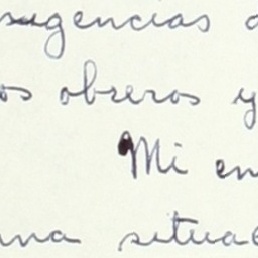 sugencias a
os obreros y
Mi en
una situa